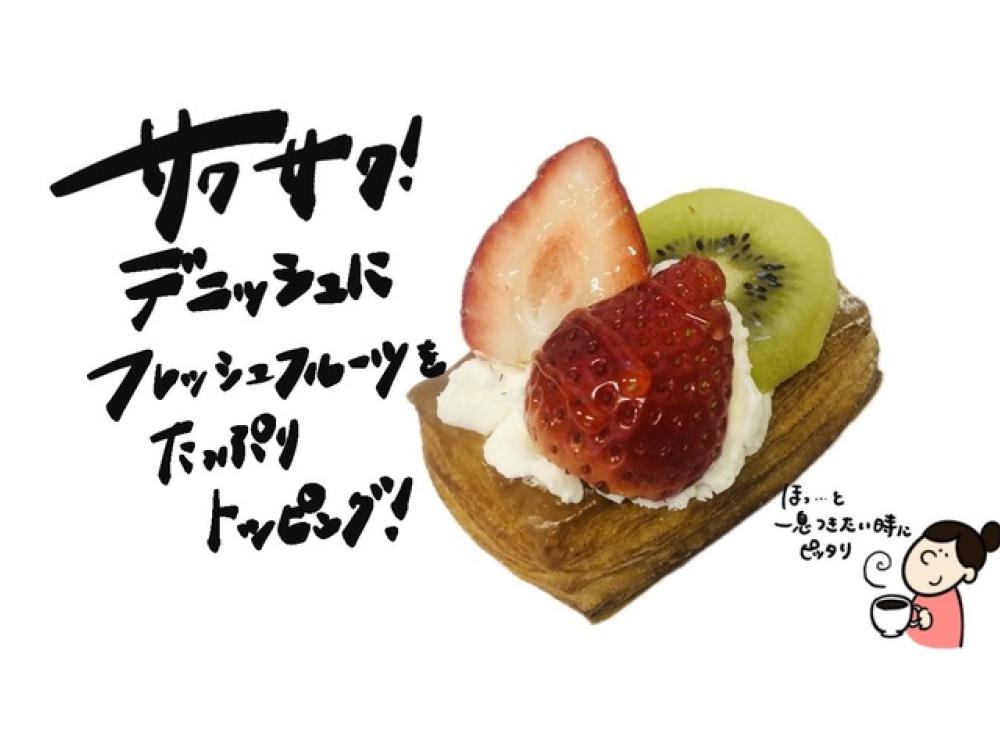 サクサク!
デニッシュに
フレッシュフルーツを
たっぷり
トッピング!
ほっ…と
一息つきたい時に
ピッタリ